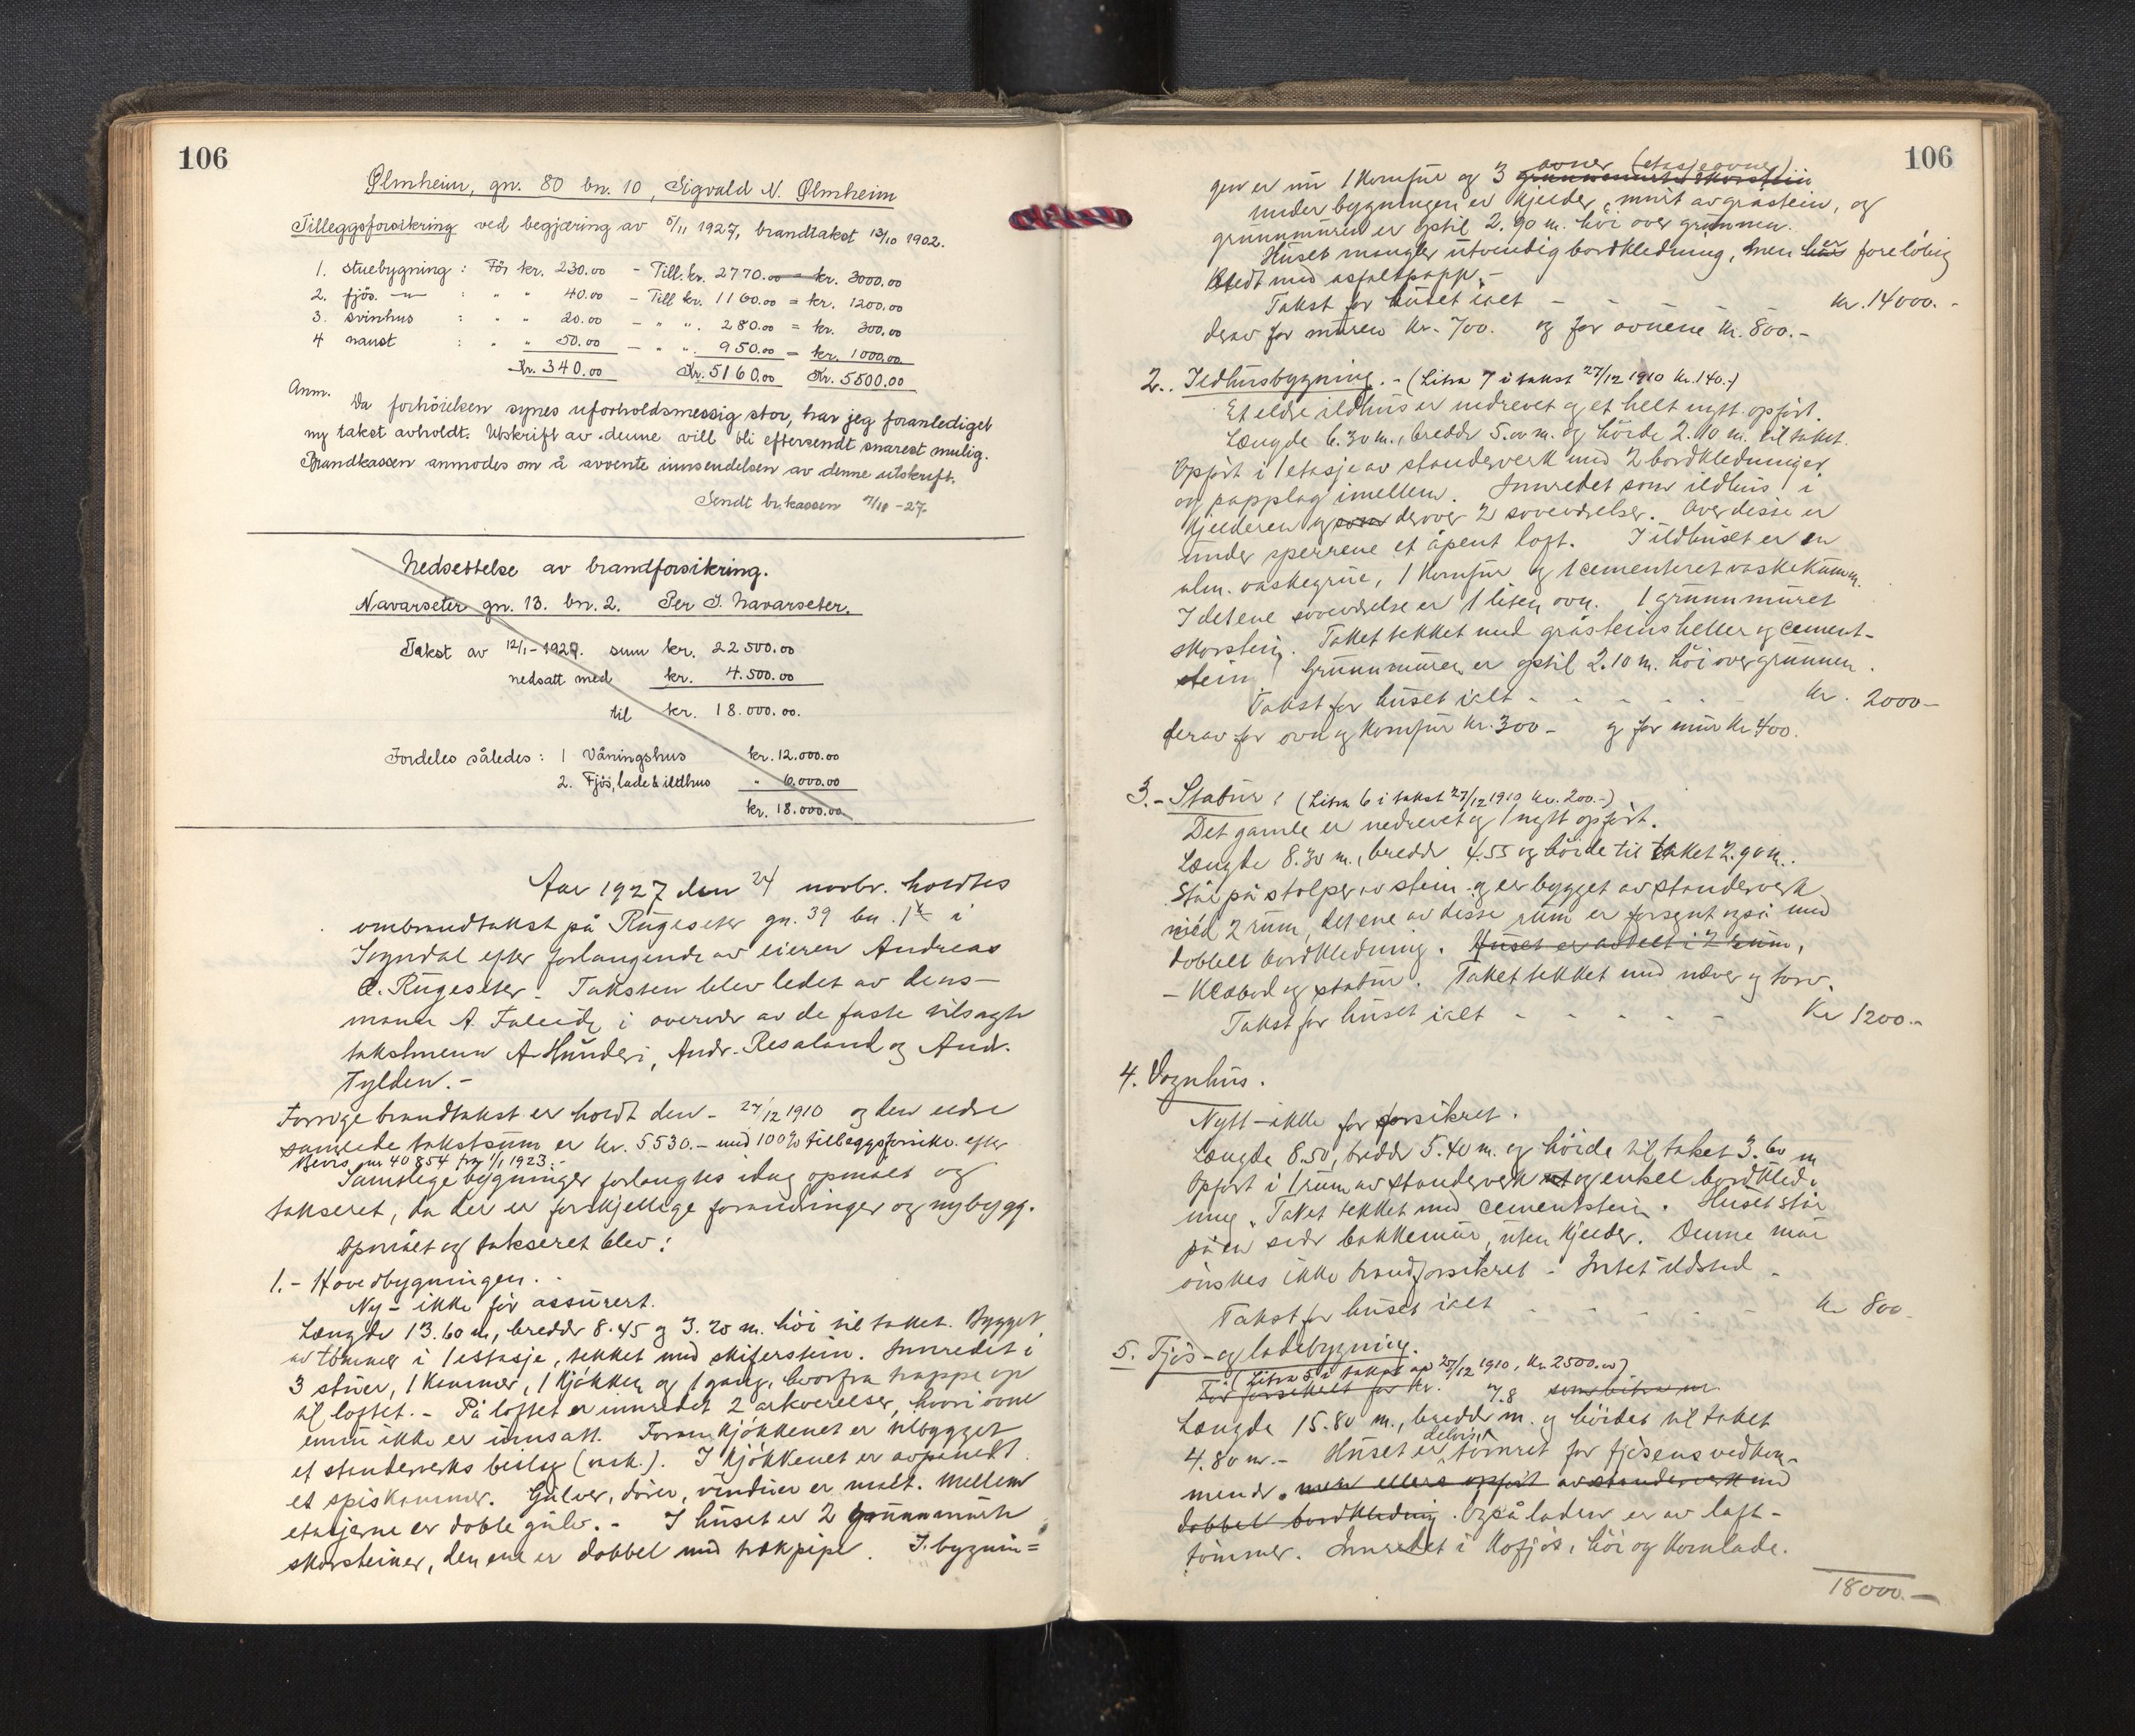 106
Ølmheim, gn. 80 bn. 10, Sigvald N. Ølmheim
Tilleggsforsikring ved begjæring av 5/11 1927, brandtakst 13/10 1902.
1. stuebygning : Før kr. 230.00 - Till. kr. 2770.00 = kr. 3000.00
2. fjös. —"— : " " 40.00 - Till kr. 1160.00 = kr. 1200.00
3. svinhus : " " 20.00 - " " 280.00 = kr. 300.00
4 naust : " " 50.00 - " " 950.00 = kr. 1000.00
Kr. 340.00 Kr. 5160.00 Kr. 5500.00
Anm. Da forhöielsen synes uforholdsmessig stor, har jeg foranlediget
ny takst avholdt. Utskrift av denne vill bli eftersendt snarest mulig.
Brandkassen anmodes om å avvente innsendelsen av denne utskrift.
Sendt br.kassen -27.
Nedsettelse av brandforsikring.
Navarseter gn. 13. bn. 2. Per I. Navarseter.
Takst av 12/1-1927. sum kr. 22500.00
nedsatt med kr. 4.500.00
til kr. 18.000.00.
Fordeles således : 1 Våningshus kr. 12.000.00
2. Fjös, lade & ildhus " 6.000.00
kr. 18.000.00
Aar 1927 den 24 novbr. holdtes
ombrandtakst på Rugeseter gn. 39 bn. 1 i
Sogndal efter forlangende av eieren Andreas
Rugeseter. Taksten blev ledet av lens-
mann A. Faleide i overvær av de faste tilsagte
takstmenn A Hunderi, Andr. Resaland og Andr.
Tylden.-
Forrige brandtakst er holdt den - 27/12 1910 og den eldre
samlede takstsum er kr. 5530.- med 100% tilleggsforsikr. efter
Bevis nr 40854 fra 1/1 1923.-
Samtlige bygninger forlangtes idag opmålt og
taksert, da der er forskjellige forandringer og nybygg.
Opmålt og taksert blev:
1.- Hovedbygningen.
Ny - ikke før assurert.
Længde 13.60 m, bredde 8.45 og 3.20 m. höi til taket. Bygget
av tömmer i 1 etasje, tekket med skiferstein. Innredet i
3 stuer, 1 kammer, 1 kjökken og 1 gang, hvorfra trappe op
til loftet.- På loftet er innredet 2 arkverelser, hvori ovne
ennu ikke er innsatt. Foran kjökkenet er tilbygget
et stenderverks beslag. I kjökkenet er avpanelt
et spiskammer. Gulver, dörer, vinduer er malt. Mellem
etasjerne er doble gulv.- I huset er 2 grunnmurte
skorsteiner, den ene er dobbel med trækpipe. I bygnin=
106
gen er nu 1 komfur og 3 grunnmurte skorstein ovner (etasjeovner)
under bygningen er kjelder, murt av gråstein, og
grunnmuren er optil 2.90 m. höi over grunnen.
Huset mangler utvendig bordkledning, men har er foreløbig
kledt med asfaltpapp.-
Takst for huset ialt - - - - - kr. 14000.-
derav for muren kr. 700. og for ovnene kr. 800.-
2. Ildhusbygning.- (Litra 7 i takst 27/12 1910 kr. 140.-)
Et eldre ildhus er nedrevet og et helt nytt opfört.
Længde 6.30 m., bredde 5.00 m. og höide 2.10 m. til taket.
Opfört i 1 etasje av stenderverk med 2 bordkledninger
og papplag imellem. Innredet som ildhus i
kjelderen og som derover 2 soveværelser. Over disse er
under sperrene et åpent loft. I ildhuset er en
alm. vaskegrue, 1 komfur og 1 cementeret vaskekumm.
I det ene soveværelse er 1 liten ovn. 1 grunnmuret
skorstein. Taket tekket med gråsteinsheller og cement-
stein. Grunnmuren er optil 2.10 m. höi over grunnen.
Takst for huset ialt - - - - - kr. 2000-
derav for ovn og komfur kr. 300- og for mur kr 400.
3.- Stabur : (Litra 6 i takst 27/12 1910 kr. 200.-)
Det gamle er nedrevet og 1 nytt opfört.
Længde 8.30 m., bredde 4.55 og höide til taket 2.90 m.
Står på stolper av stein og er bygget av stenderverk
med 2 rum, det ene av disse rum er forsynt også med
dobbelt bordkledning. Huset er avdelt i 2 rum,
- klæbod og stabur. Taket tekket med næver og torv.
Takst for huset ialt - - - - - Kr 1200.-
4. Vognhus.
Nytt - ikke för forsikret.
Længde 8.50, bredde 5.40 m. og höide til taket 3.60 m
Opfört i 1 rum av stenderverk og enkel bordkled-
ning. Taket tekket med cementstein. Huset står
på en side bakkemur, uten kjelder. Denne mur
önskes ikke brandforsikret - Intet ildsted -
Takst for huset ialt - - - - - kr 800-
5. Fjös- og ladebygning.
(Litra 5 i takst av 27/12 1910, kr. 2500.00)
För forsikret for kr. som litra nr.
Længde 15.80 m., bredde 7.8 m. og höide til taket
4.80 m.- Huset er delvis tömret for fjösens vedkom-
mende. men ellers opfört av stenderverk med
dobbel bordkledning. Også laden er av laft-
tömmer. Innredet i kofjös, höi og kornlade.
18000.-